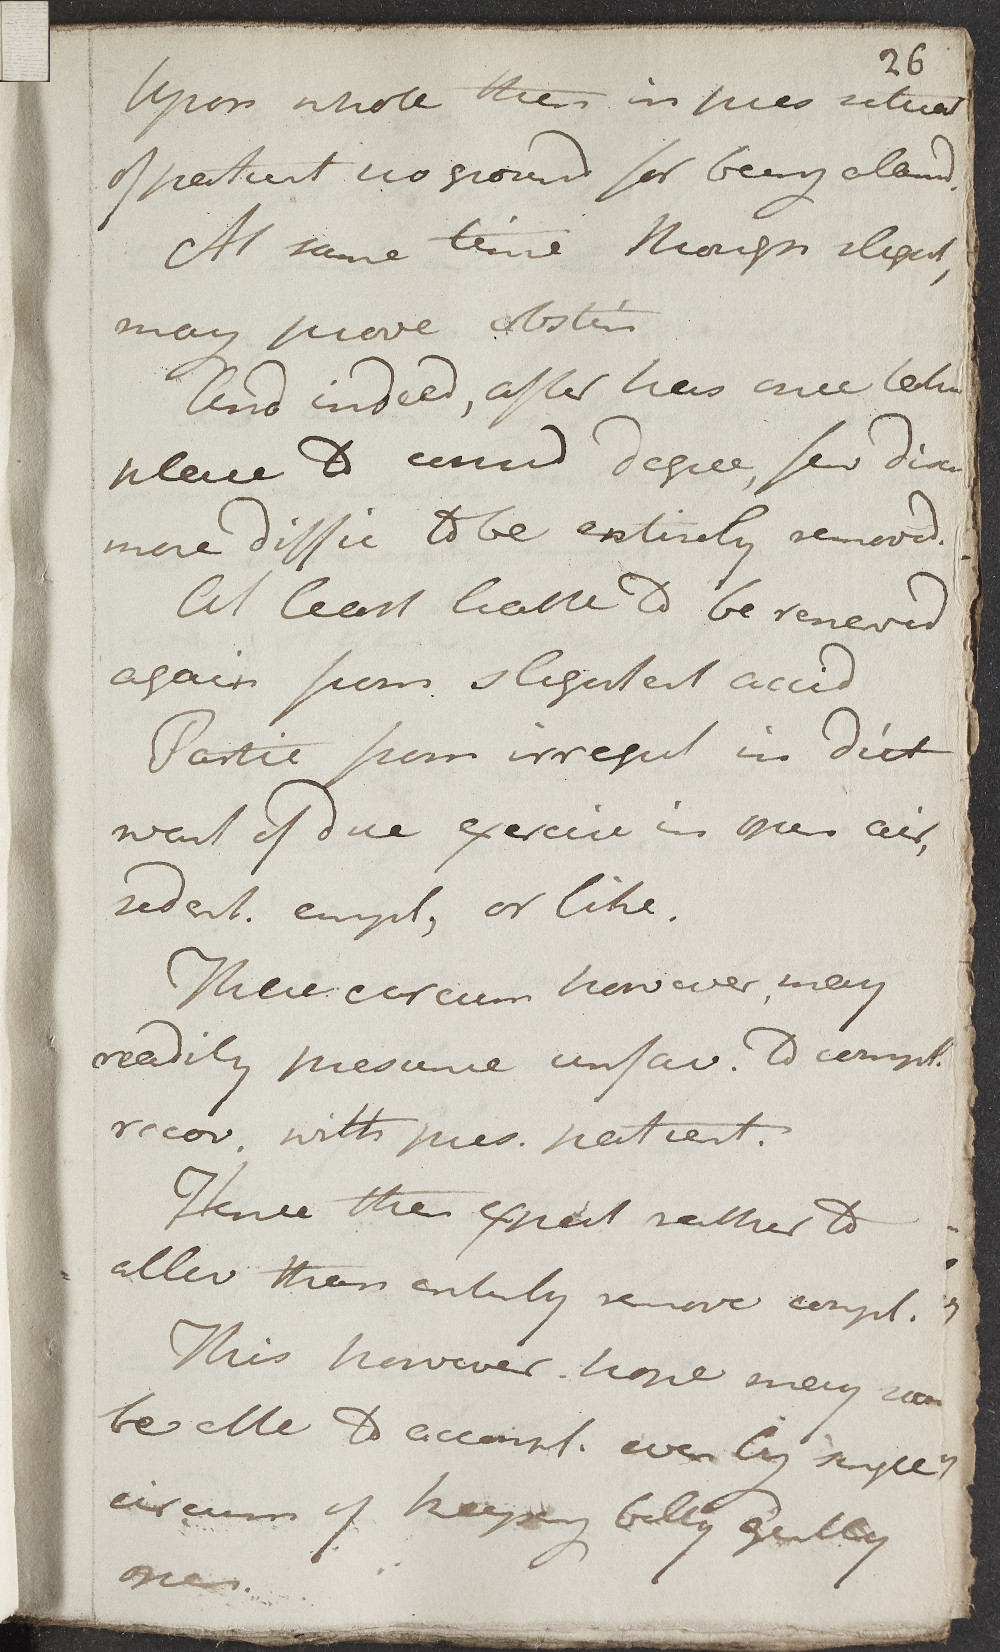 26
Upon whole then in pres situat
of patient no ground for being alarmd.
At same time though slight,
may prove obstin
And indeed, after has once taken
place to consid degree, few diseas
more diffic to be entirely removd.
At least liable to be renewed
again from slightest accid
Partic from irregul in diet
want of due exercise in open air,
sedent. empl, or like.
These circum however, may
readily presume unfav. to compl.
recov. with pres. patient.
Hence then expect rather to
allev than entirely remove compl.
This however hope may soon
be able to accompl. even by single
circum of keeping belly gently
open.